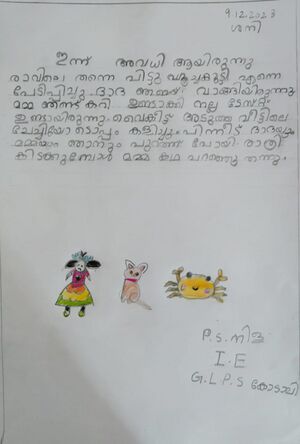 9.12.2023
ശനി
ഇന്ന് അവധി ആയിരുന്നു
രാവിലെ തന്നെ പിട്ടു പൂച്ചകുട്ടി എന്നെ
പേടിപ്പിച്ചു ദാദ ഞണ്ട് വാങ്ങിയിരുന്നു
മമ്മ ഞണ്ട്കറി ഉണ്ടാക്കി നല്ല ടേസ്റ്റും
ഉണ്ടായിരുന്നു വൈകിട്ട് അടുത്ത വീട്ടിലെ
ചേച്ചിയോടൊപ്പം കളിച്ചും പിന്നീട് ദാദയും
മമ്മയും ഞാനും പുറത്ത് പോയി രാത്രി
കിടക്കുമ്പോൾ മമ്മ കഥ പറഞ്ഞു തന്നു.
P.S.നിള
I.E
G.L.P.S കോടാലി